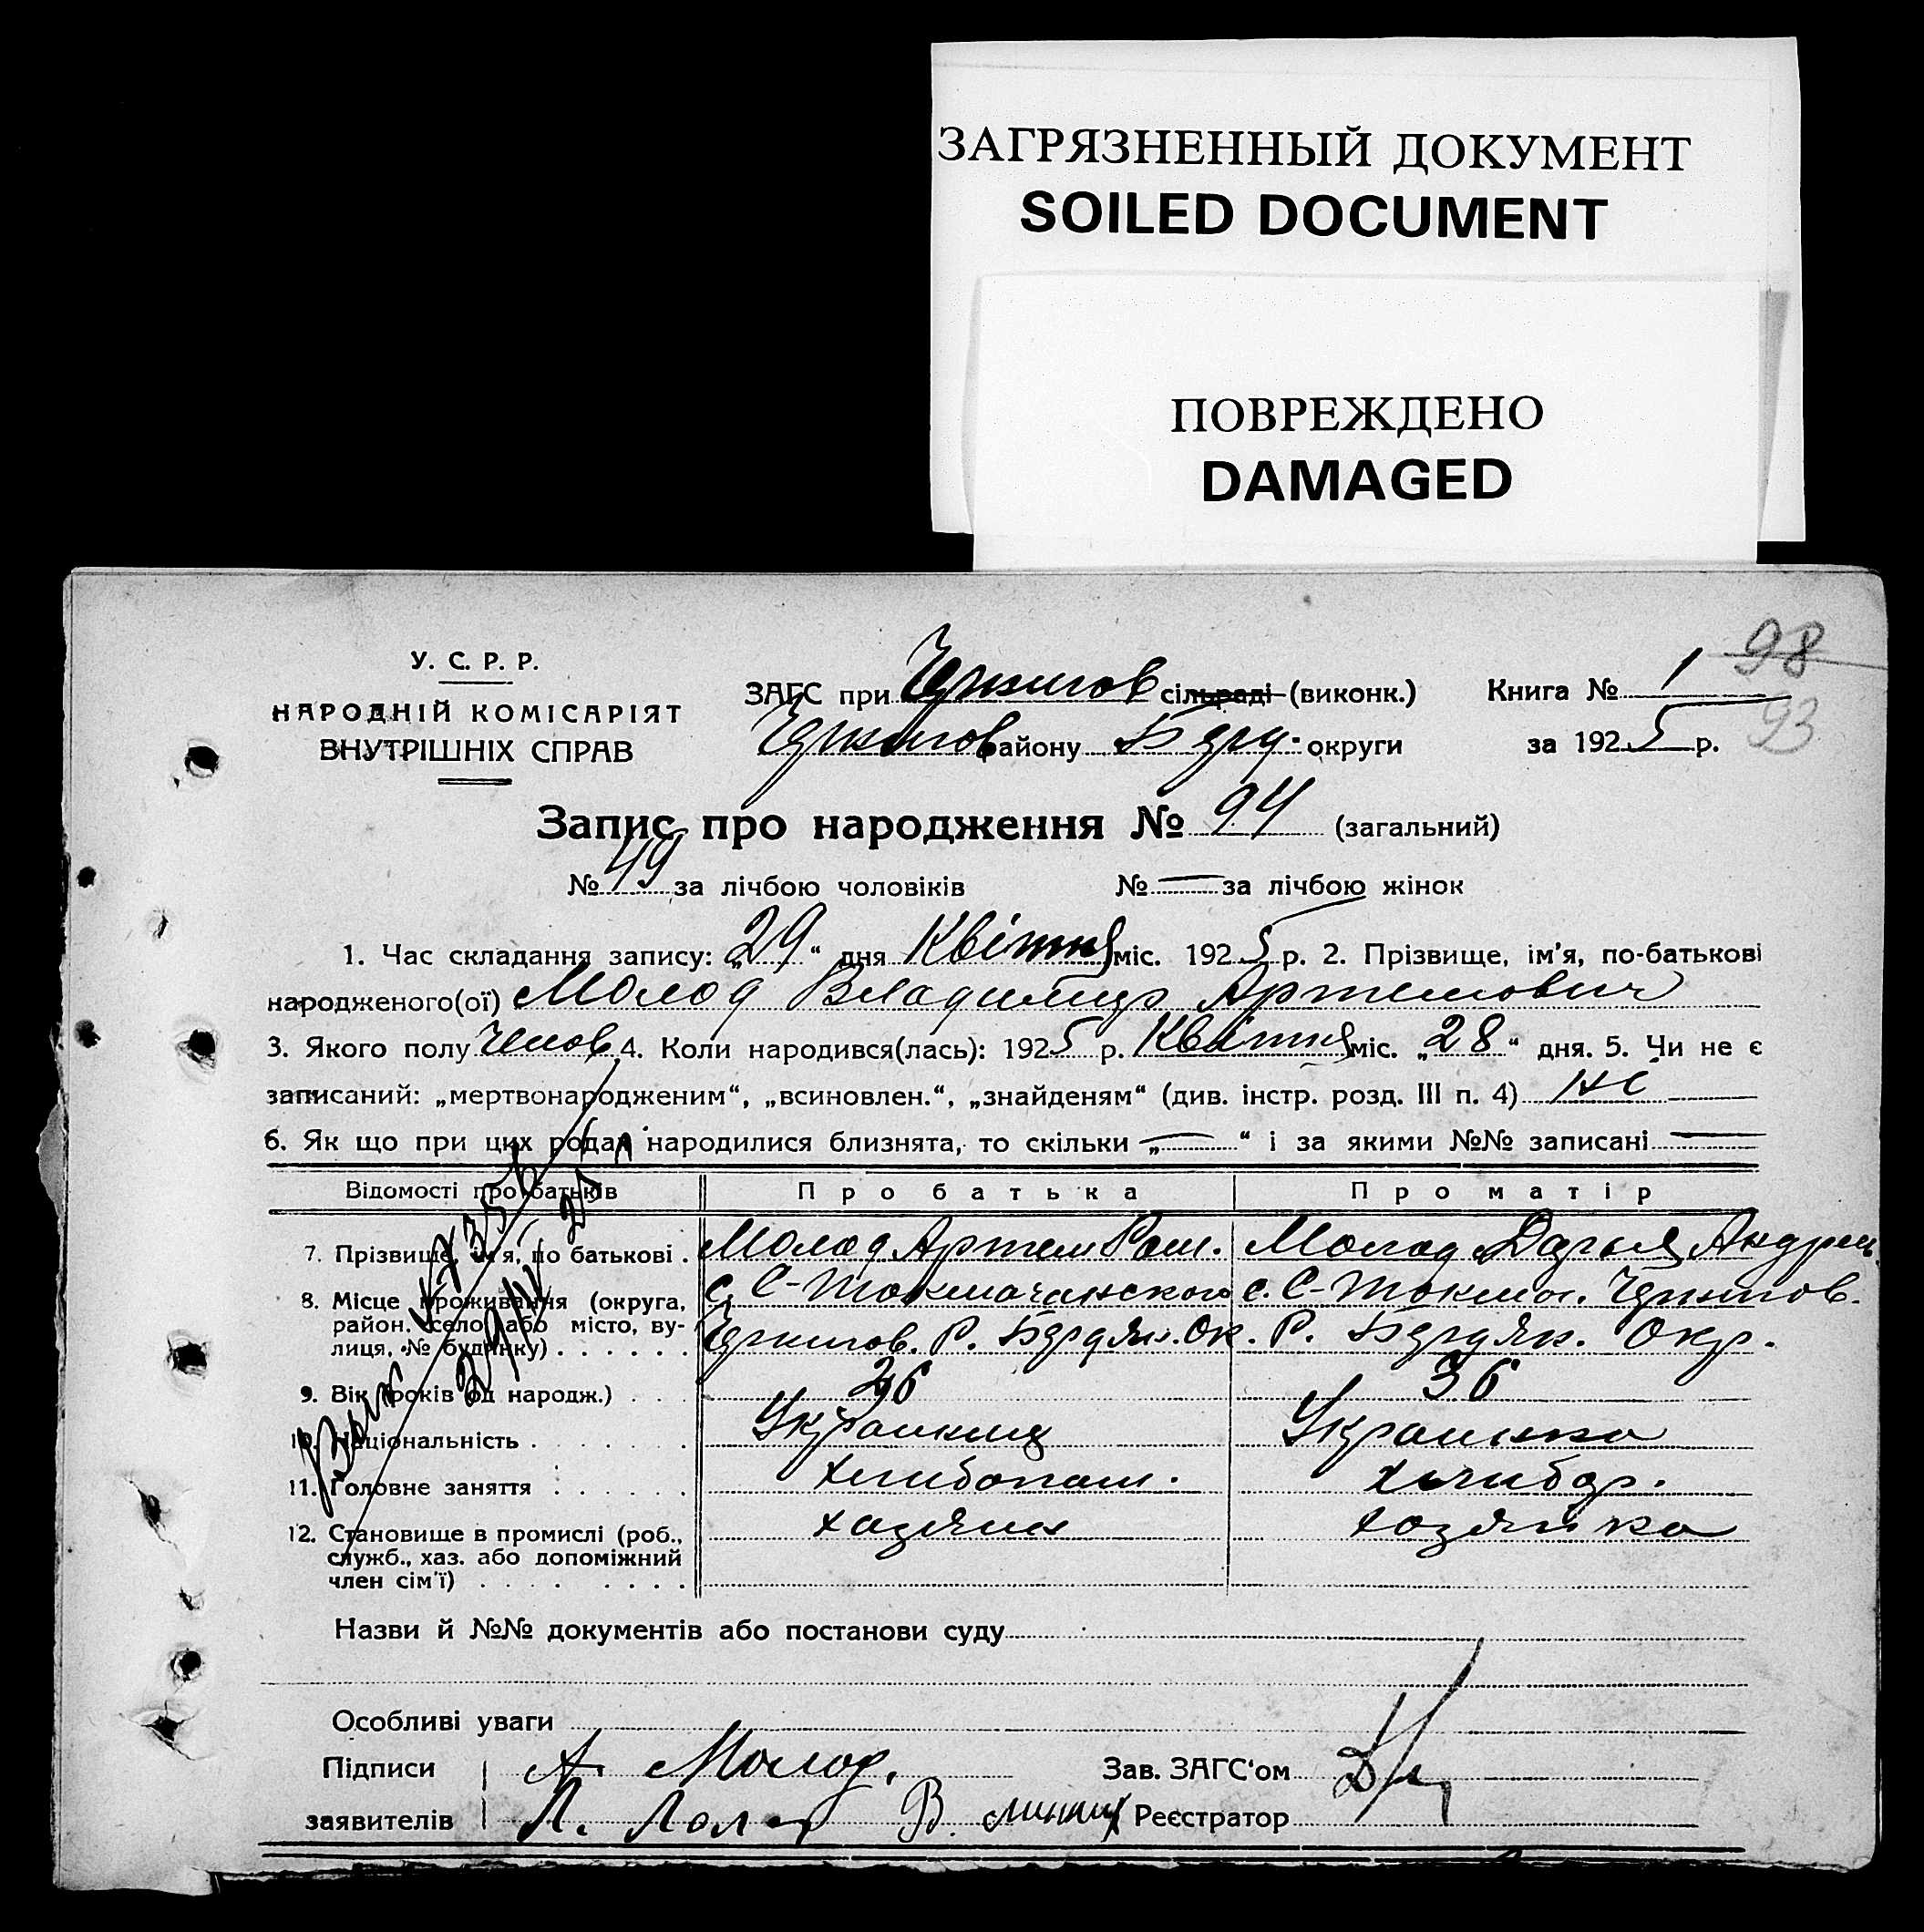 ЗАГРЯЗНЕННЫЙ ДОКУМЕНТ
SOILED DOCUMENT
ПОВРЕЖДЕНО
DAMAGED
98
93
У. С. Р. Р.
НАРОДНІЙ КОМІСАРІЯТ
ВНУТРІШНІХ СПРАВ
ЗАГС при сільраді (виконк.) Книга № 1
району округи за 1925 р.
Запис про народження № 94 (загальний)
№ 49 за лічбою чоловіків № — за лічбою жінок
1. Час складання запису: „29“ дня Квітня міс. 1925 р. 2. Прізвище, ім'я, по-батькові
народженого(ої) Молод Владимир Артемович
3. Якого полу Челов 4. Коли народився(лась): 1925 р. Квітня міс. „28“ дня. 5. Чи не є
записаний: „мертвонародженим“, „всиновлен.“, „знайденям“ (див. інстр. розд. III п. 4) не
6. Як що при цих родах народилися близнята, то скільки „—“ і за якими №№ записані —
Відомості про батьків Про батька Про матір
7. Прізвище, ім'я, по батькові . Молод Артем Ром. Молод Дарья Андреев
8. Місце проживання (округа, с. С-Токмачанского с. С-Токмач.
район, село або місто, ву-
лиця, № будинку) . . . . . . Р. Бердян. Ок. Р. Бердян. Окр.
9. Вік (років од народж.) . . . 36 36
10. Національність . . . . . . Украинец Украинка
11. Головне заняття . . . . . . хлибопаш. хлибор.
12. Становище в промислі (роб., хазяин хозяйка
служб., хаз. або допоміжний
член сім'ї) . . . . . . . .
Назви й №№ документів або постанови суду
Особливі уваги
Підписи А. Молод. Зав. ЗАГС'ом
заявителів Реєстратор